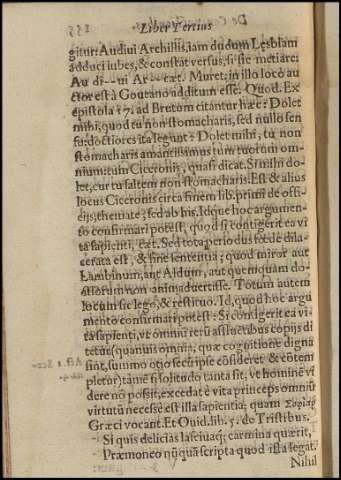 Liber Tertius
gitur: Audiui Archillis, iam dudum Lesbiam
adduci iubes, & constat versus, si sic metiare:
Au di-- ui Ar-- cat. Muret: in illo loco au
ctor est à Goueano additum esse. Quod. Ex
epistola 17. ad Brutum citantur hæc: Dolet
mihi, quod tu non stomacharis, sed nullo sen
su: doctiores ita legunt: Dolet mihi, tu non
stomacharis amantissimus tum tuorum om
nium: tum Ciceronis, quasi dicat. Si mihi do
let, cur tu saltem non stomacharis. Est & alius
locus Ciceronis circa finem lib. primi de offi-
cijs, themate; sed ab his. Idque hoc argumen-
to confirmari potest, quod si contigerit ea vi
ta sapienti, cæt. Sed tota periodus fœde dila-
cerata est, & sine sententia; quod miror aut
Lambinum, aut Aldum, aut quemquam do-
ctiorum non animaduertisse. Totum autem
locum sic lego, & restituo. Id, quod hoc argu
mento confirmari potest: Si contigerit ea vi-
ta sapienti, vt omniū rerū affluctibus copijs di
tetur (quamuis omnia, quæ cognitione digna
sint, summo otio secūipse cōsideret & cōtem
pletur) tamē si solitudo tanta sit, vt hominē vi
dere nō possit, excedat è vita princeps omniū
virtutū necesse est illa sapientia; quam Σοφίαν
Græci vocant. Et Ouid. lib. 5. de Tristibus.
Si quis delicias lasciuaq; carmina quærit,
Præmoneo nūquā scripta quod ista legat.
Nihil